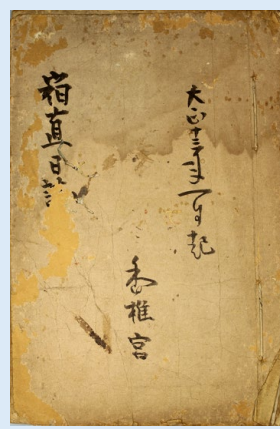 大正十三年一月起
香椎宮
宿直日誌